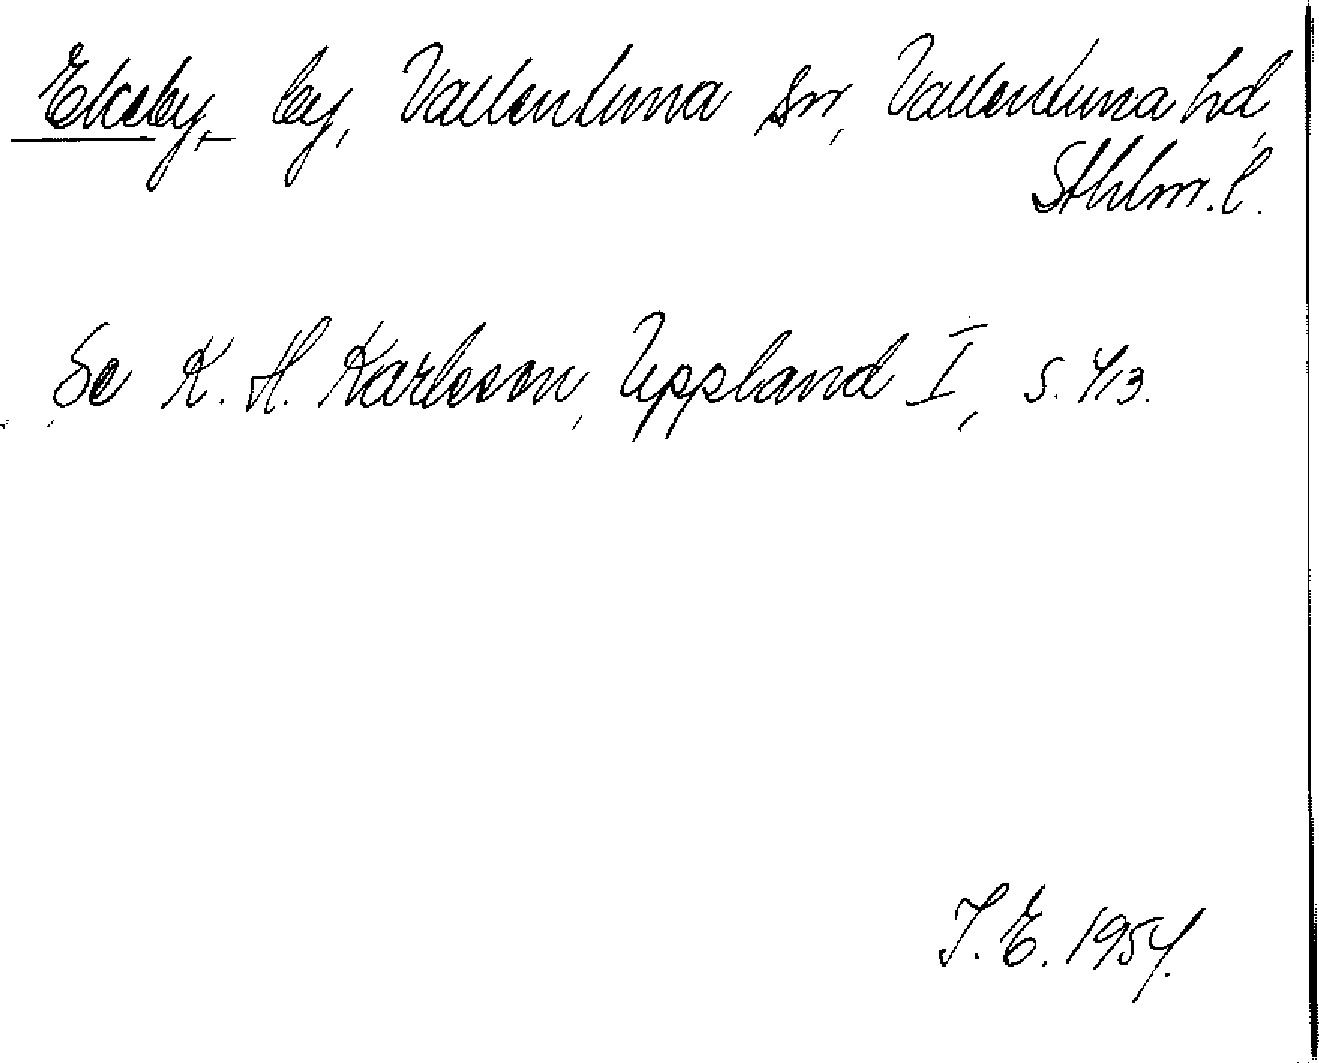 Ekeby, by, Vallentuna sn, Vallentuna hd,
Sthlm. l.
Se K. H. Karlsson, Uppland I, s. 413.
I. E. 1954.